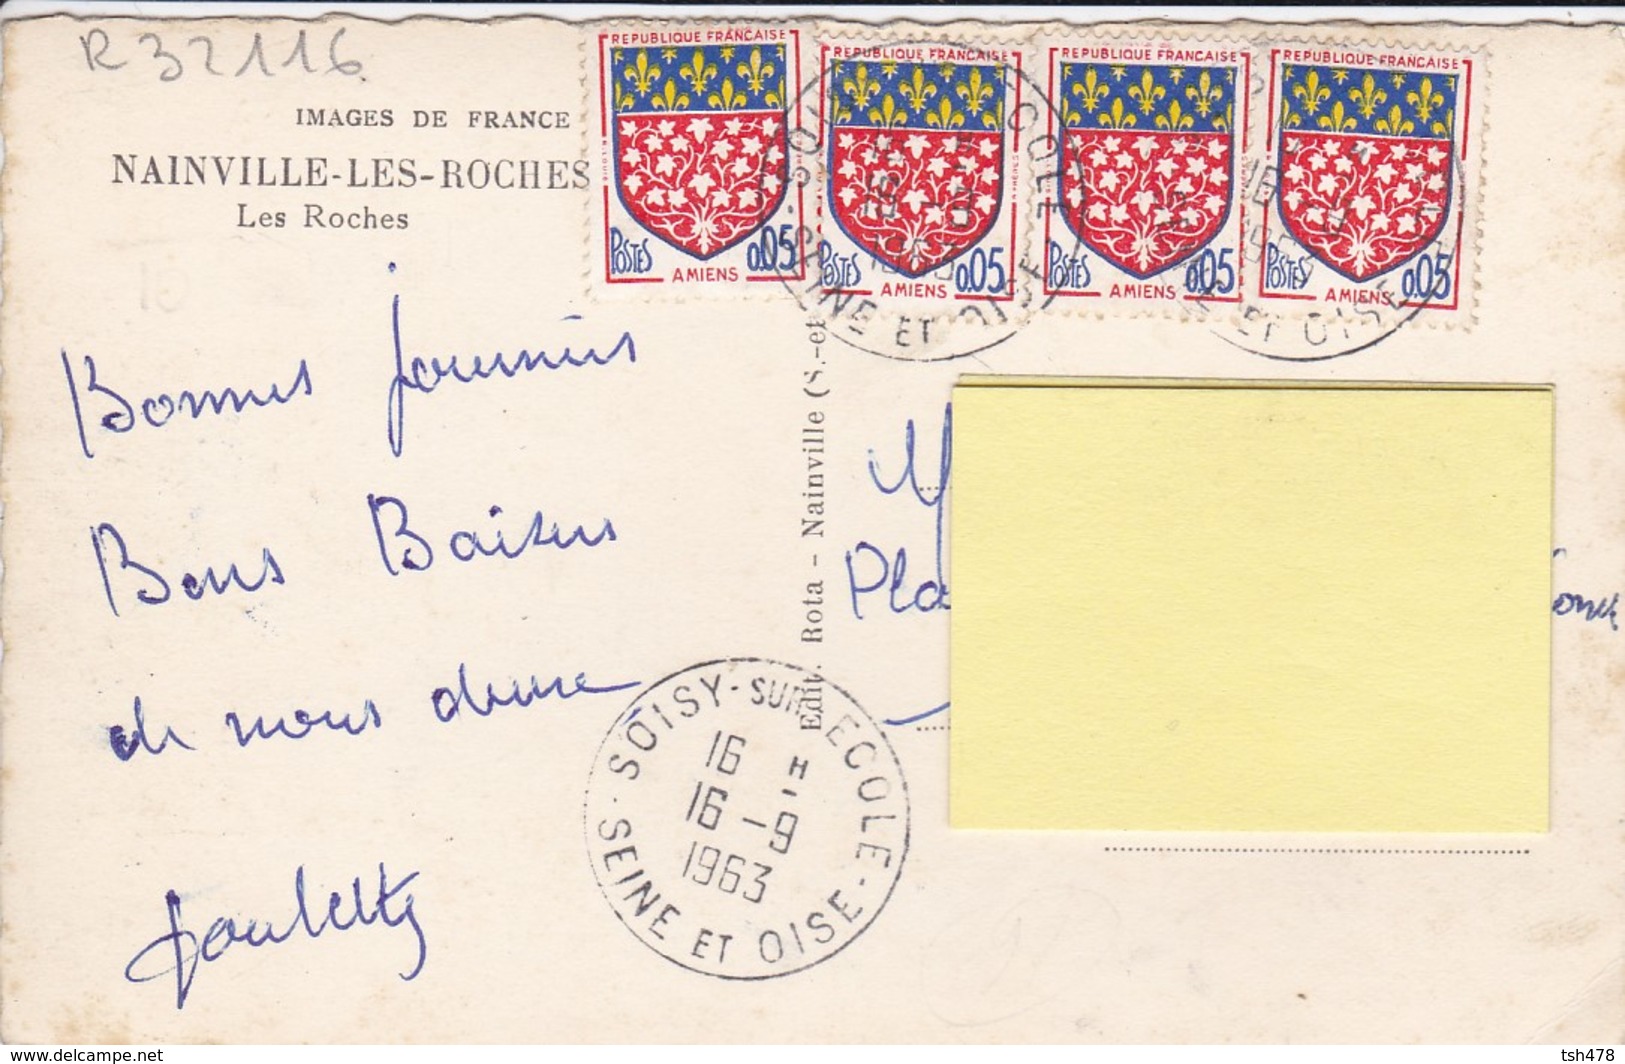 R 32116
IMAGES DE FRANCE
NAINVILLE-LES-ROCHES
Les Roches
REPUBLIQUE FRANÇAISE
POSTES
0.05
AMIENS
REPUBLIQUE FRANÇAISE
POSTES
0.05
AMIENS
REPUBLIQUE FRANÇAISE
POSTES
0.05
AMIENS
REPUBLIQUE FRANÇAISE
POSTES
0.05
AMIENS
Bonnes journées
Bons Baisers
de nous deux
Edit. Rota - Nainville (S.-et
Pla
SOISY-SUR-ECOLE
16 H
16-9
1963
SEINE ET OISE
www.delcampe.net
tsh478